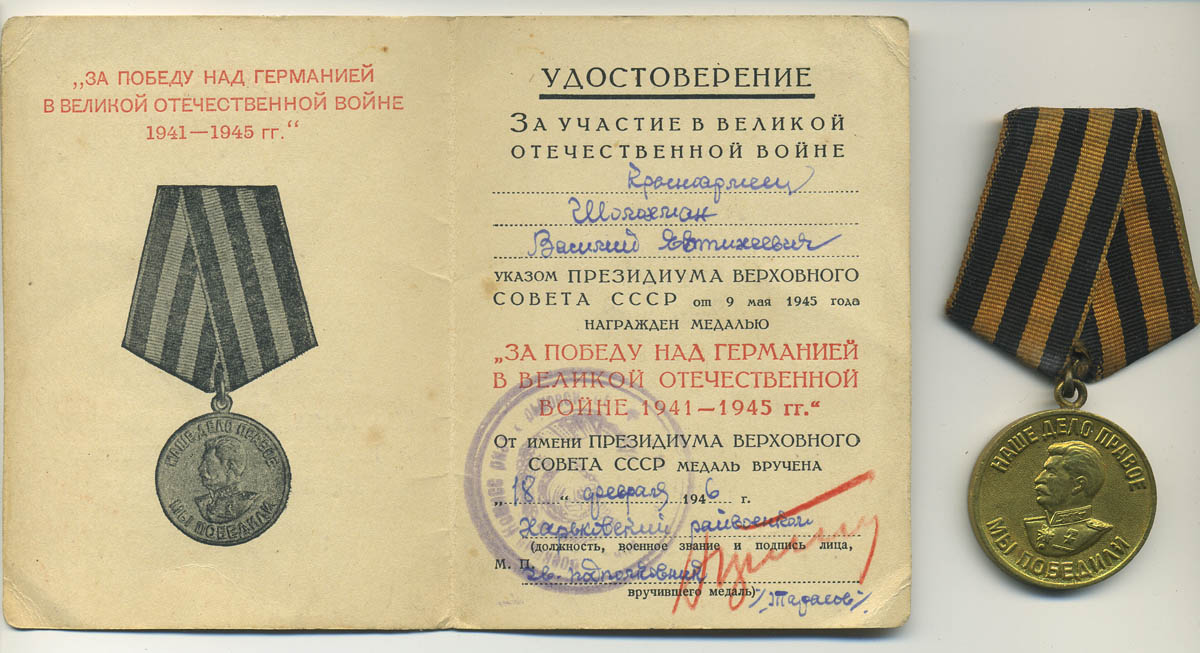 „ЗА ПОБЕДУ НАД ГЕРМАНИЕЙ
В ВЕЛИКОЙ ОТЕЧЕСТВЕННОЙ ВОЙНЕ
1941—1945 гг.“
НАШЕ ДЕЛО ПРАВОЕ
МЫ ПОБЕДИЛИ
УДОСТОВЕРЕНИЕ
ЗА УЧАСТИЕ В ВЕЛИКОЙ
ОТЕЧЕСТВЕННОЙ ВОЙНЕ
Красноармеец
Василий Евтихеевич
УКАЗОМ ПРЕЗИДИУМА ВЕРХОВНОГО
СОВЕТА СССР от 9 мая 1945 года
НАГРАЖДЕН МЕДАЛЬЮ
„ЗА ПОБЕДУ НАД ГЕРМАНИЕЙ
В ВЕЛИКОЙ ОТЕЧЕСТВЕННОЙ
ВОЙНЕ 1941—1945 гг.“
От имени ПРЕЗИДИУМА ВЕРХОВНОГО
СОВЕТА СССР МЕДАЛЬ ВРУЧЕНА
„18“ февраля 1946 г.
Харьковский райвоенком
(должность, военное звание и подпись лица,
М. П.
гв. подполковник
вручившего медаль)
/Тарасов/
НАШЕ ДЕЛО ПРАВОЕ
МЫ ПОБЕДИЛИ